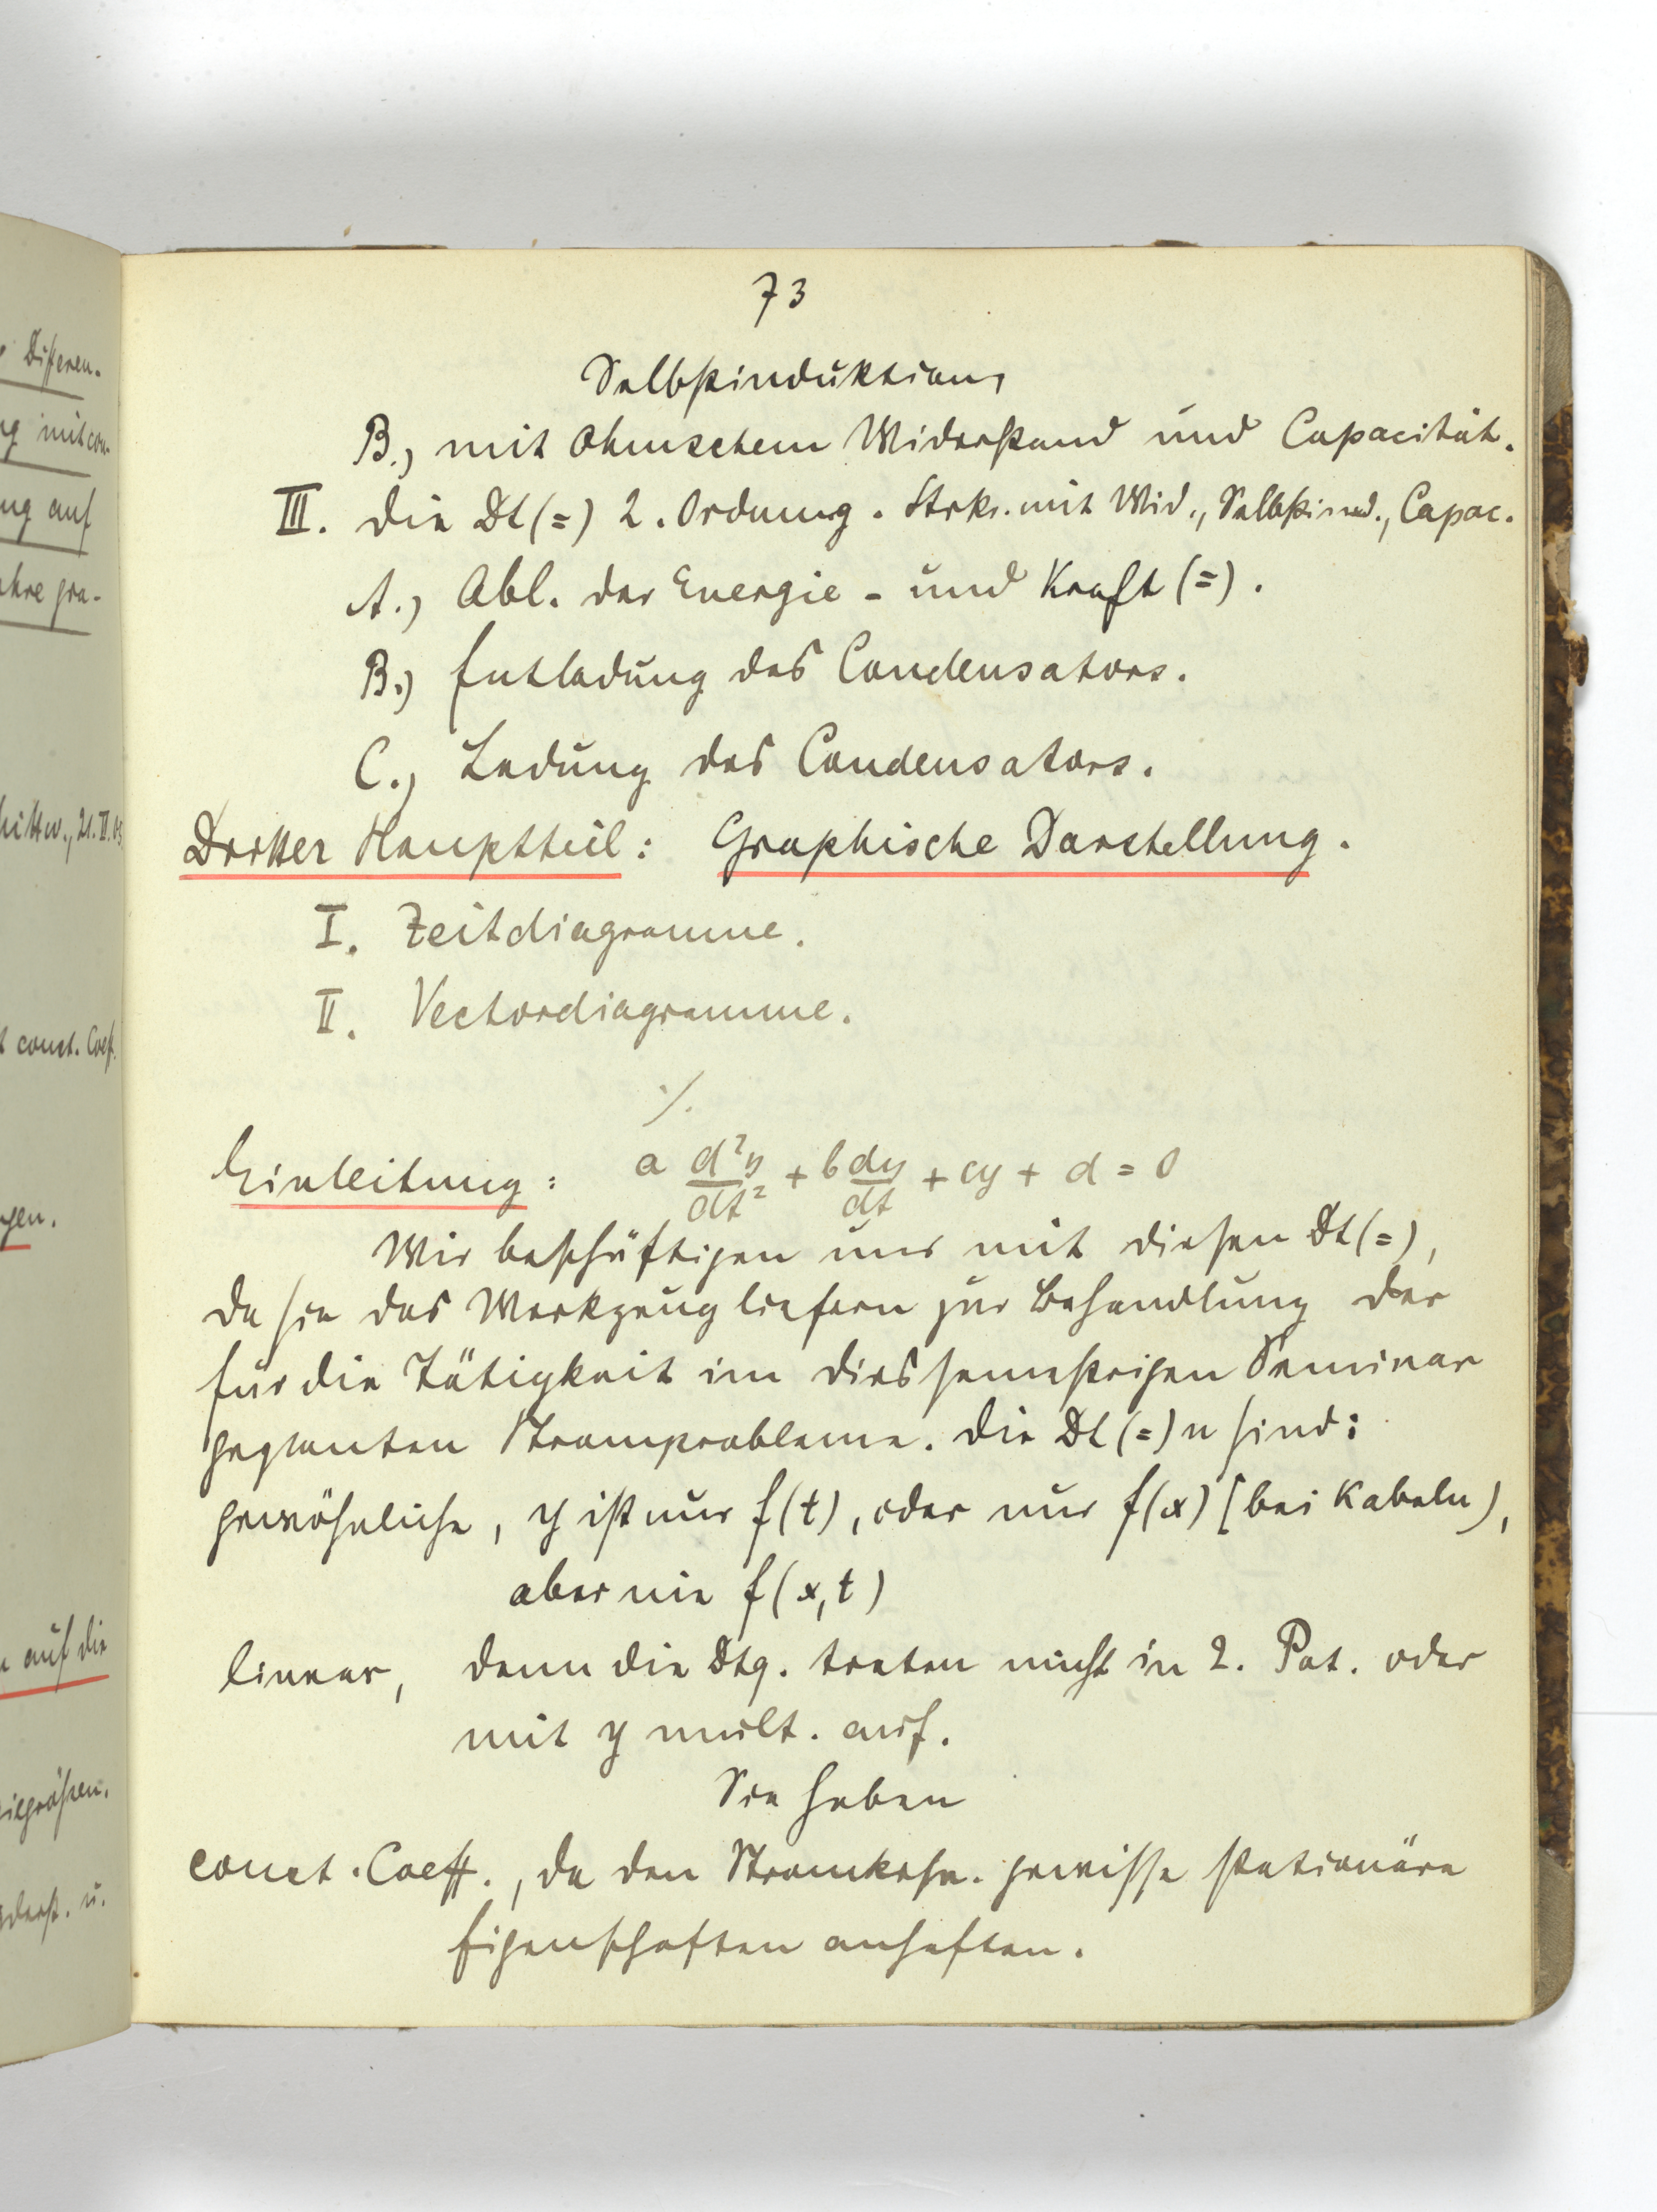 73
Selbstinduktion,
B.) mit Ohmschem Widerstand und Capacität.
III. Die Dt(=) 2. Ordnung. Strkr. mit Wid., Selbstind., Capac.
A.) Abl. der Energie- und Kraft(=).
B.) Entladung des Condensators.
C.) Ladung des Condensators.
Dritter Hauptteil: Graphische Darstellung.
I. Zeitdiagramme.
II. Vectordiagramme.
·/.
Einleitung: a d²y/dt² + b dy/dt + cy + d = 0
Wir beschäftigen uns mit diesen Dt(=),
da sie das Werkzeug liefern zur Behandlung der
für die Tätigkeit im diessemstrigen Seminar
geplanten Stromprobleme. Die Dt(=)n sind:
gewöhnliche, y ist nur f(t), oder nur f(x) (bei Kabeln),
aber nie f(x,t)
linear, denn die Dtq. treten nicht in 2. Pot. oder
mit y mult. auf.
Sie haben
const. Coeff., da den Stromkrsn. gewisse stationäre
Eigenschaften anhaften.
Differen-
mit con-
ung auf
gra-
Mittw., 21.
const. Coeff.
gen.
auf die
u.